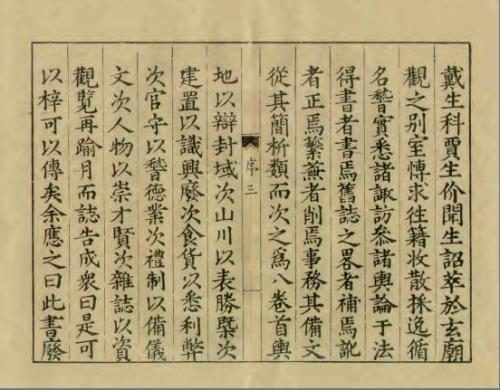 戴生科賈生价聞生詔萃於玄廟
觀之别室慱求徃籍收散採逸循
名㫮實悉諸諏訪參諸輿論于法
得書者書焉舊誌之畧者補焉訛
者正焉蘩蕪者削焉事務其備文
從其簡析類而次之爲八卷首輿
序三
地以辯封域次山川以表勝槩次
建置以識興廢次食貨以悉利弊
次官守以㫮德業次禮制以備儀
文次人物以崇才賢次雜誌以資
觀覽再踰月而誌告成衆曰是可
以梓可以傳矣余應之曰此書廢